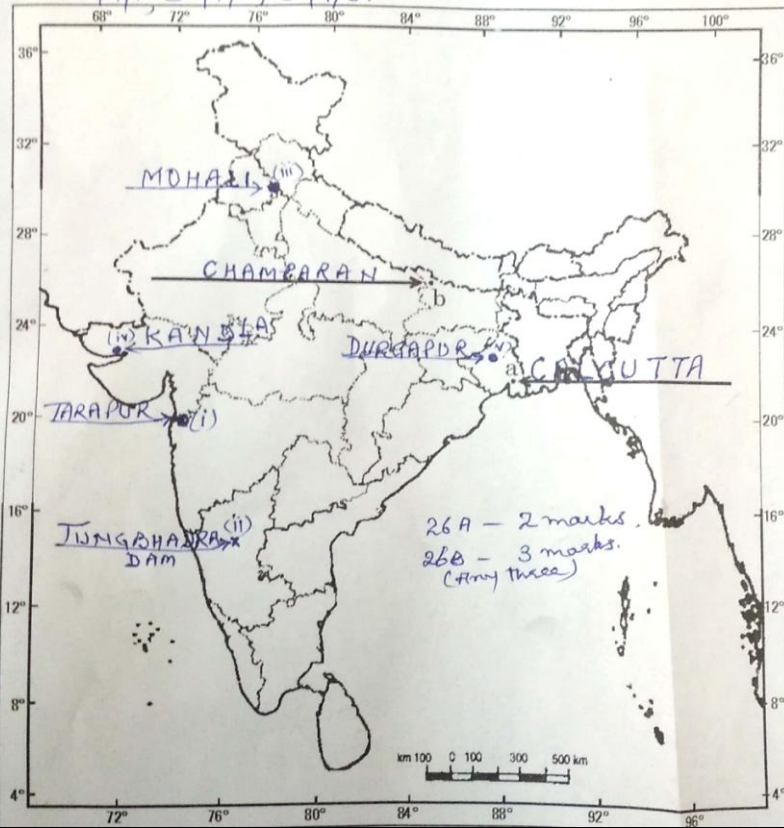 68° 72° 76° 80° 84° 88° 92° 96° 100°
36° 36°
32° 32°
MOHALI (iii)
28° 28°
CHAMPARAN
b
24° 24°
(iv) KANDLA
DURGAPUR (v)
a CALCUTTA
20° 20°
TARAPUR (i)
16° 16°
TUNGBHADRA (ii)
DAM
26A - 2 marks.
26B - 3 marks.
(Any three)
12° 12°
8° 8°
km 100 0 100 300 500 km
4° 4°
72° 76° 80° 84° 88° 92° 96°